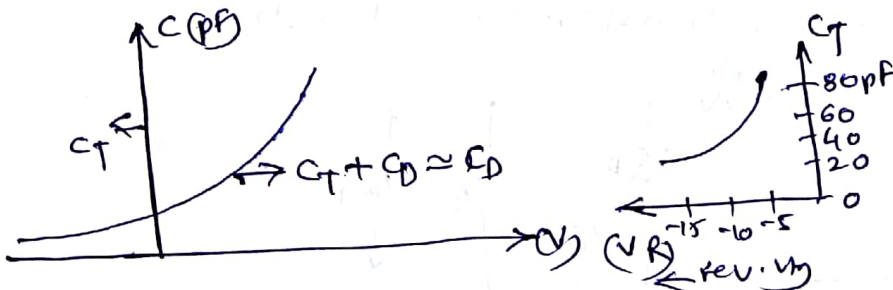 C (pf)
C_T
C_T + C_D ≃ C_D
(V)
C_T
80pf
60
40
20
0
-15 -10 -5
(VR)
← rev.